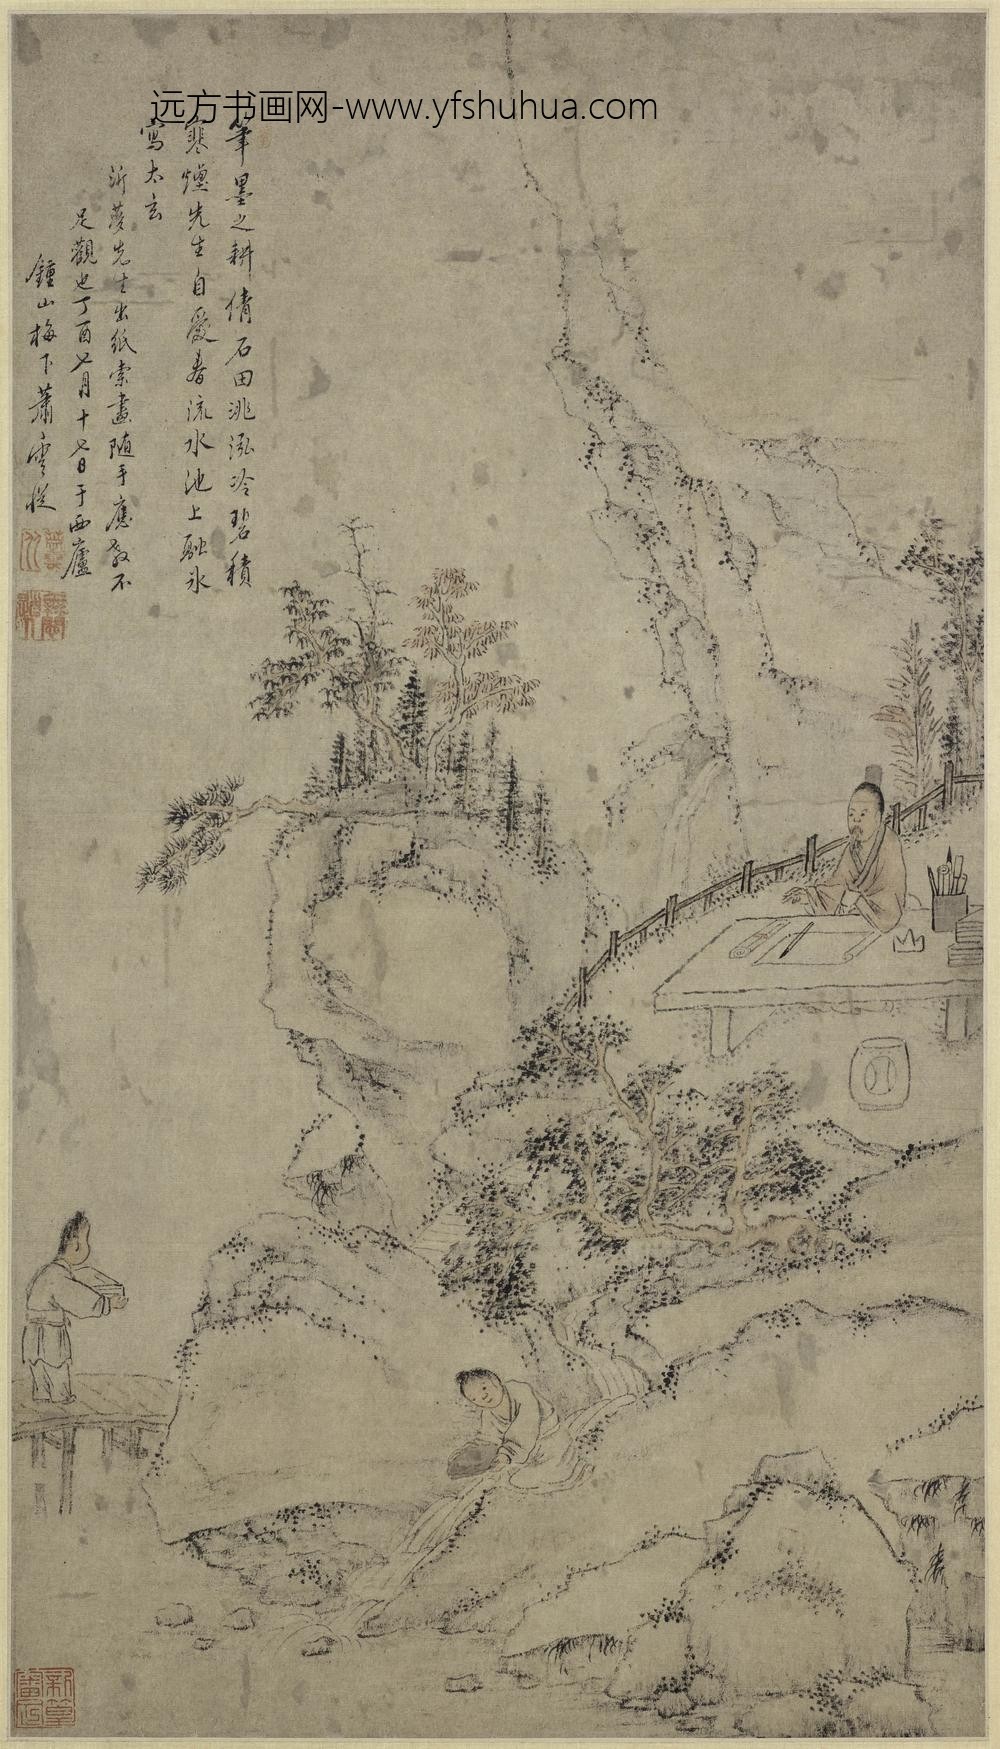 远方书画网-www.yfshuhua.com
筆墨之耕倩石田洮泓冷碧積
寒煙先生自愛春流水池上融氷
寫太玄
沂夢先生出紙索畫随手應教不
足觀也丁酉七月十七日于西廬
鍾山梅下蕭雲從